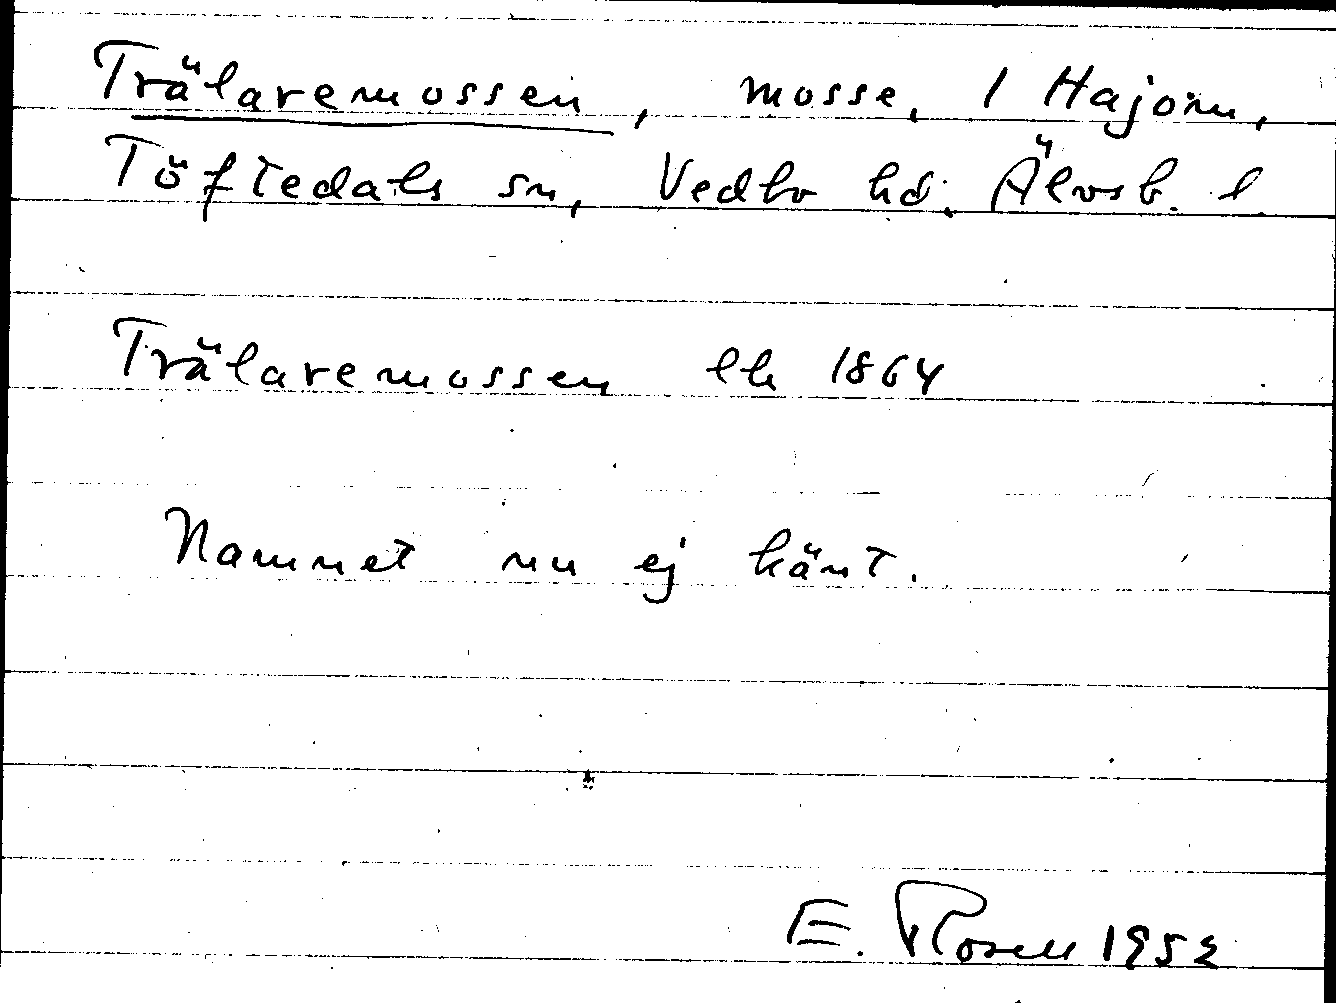 Trälaremossen, mosse, 1 Hajom,
Töftedals sn, Vedbo hd. Älvsb. l.
Trälaremossen lh 1864
Namnet nu ej känt.
E. Rosell 1952